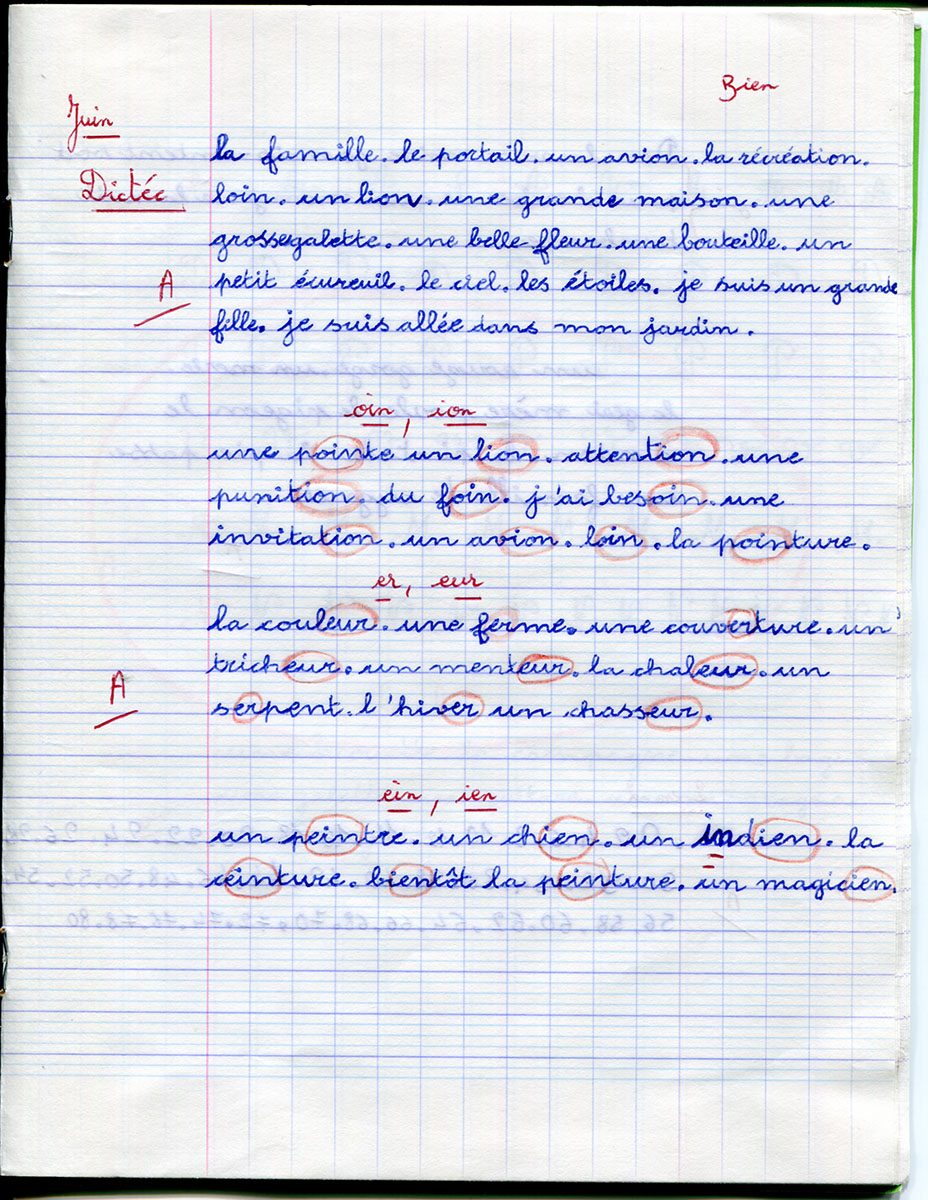 Bien
Juin
la famille. le portail. un avion. la récréation.
Dictée
loin. un lion. une grande maison. une
grosse galette. une belle fleur. une bouteille. un
A
petit écureuil. le ciel. les étoiles. je suis un grande
fille. je suis allée dans mon jardin.
oin, ion
une pointe un lion. attention. une
punition. du foin. j'ai besoin. une
invitation. un avion. loin. la pointure.
er, eur
la couleur. une ferme. une couverture. un
tricheur. un menteur. la chaleur. un
A
serpent. l'hiver un chasseur.
ein, ien
un peintre. un chien. un indien. la
ceinture. bientôt la peinture. un magicien.
56.58.60.62.64.66.68.70.72.74.76.78.80